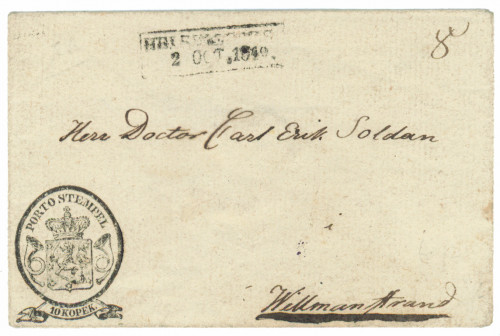 HELSINGFORS
2 OCT. 1849.
8
Herr Doctor Carl Erik Soldan
PORTO STEMPEL
10 KOPEK.
Willmanstrand